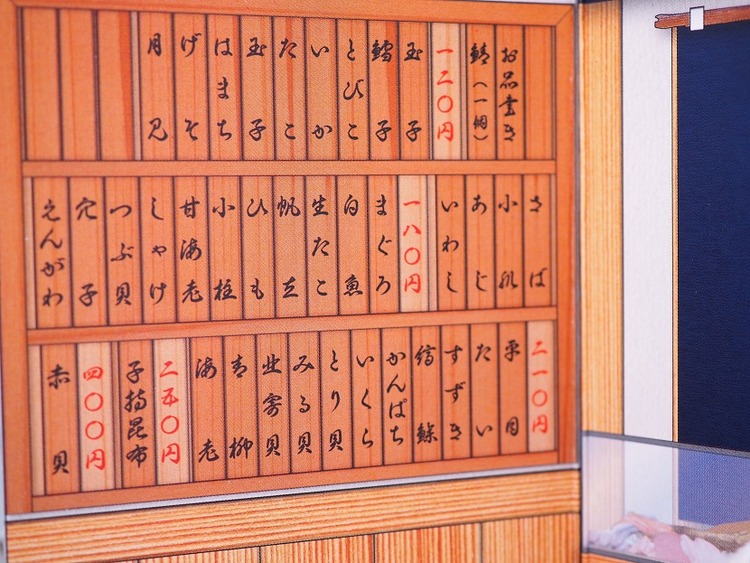 お品書き
鮨(一個)
一二〇円
玉子
鱈子
とびこ
いか
たこ
玉子
はまち
げそ
月見
さば
小肌
あじ
いわし
一八〇円
まぐろ
白魚
生たこ
帆立
ひも
小柱
甘海老
しゃけ
つぶ貝
穴子
えんがわ
二一〇円
平目
たい
すずき
縞鯵
かんぱち
いくら
とり貝
みる貝
北寄貝
青柳
海老
二五〇円
子持昆布
四〇〇円
赤貝